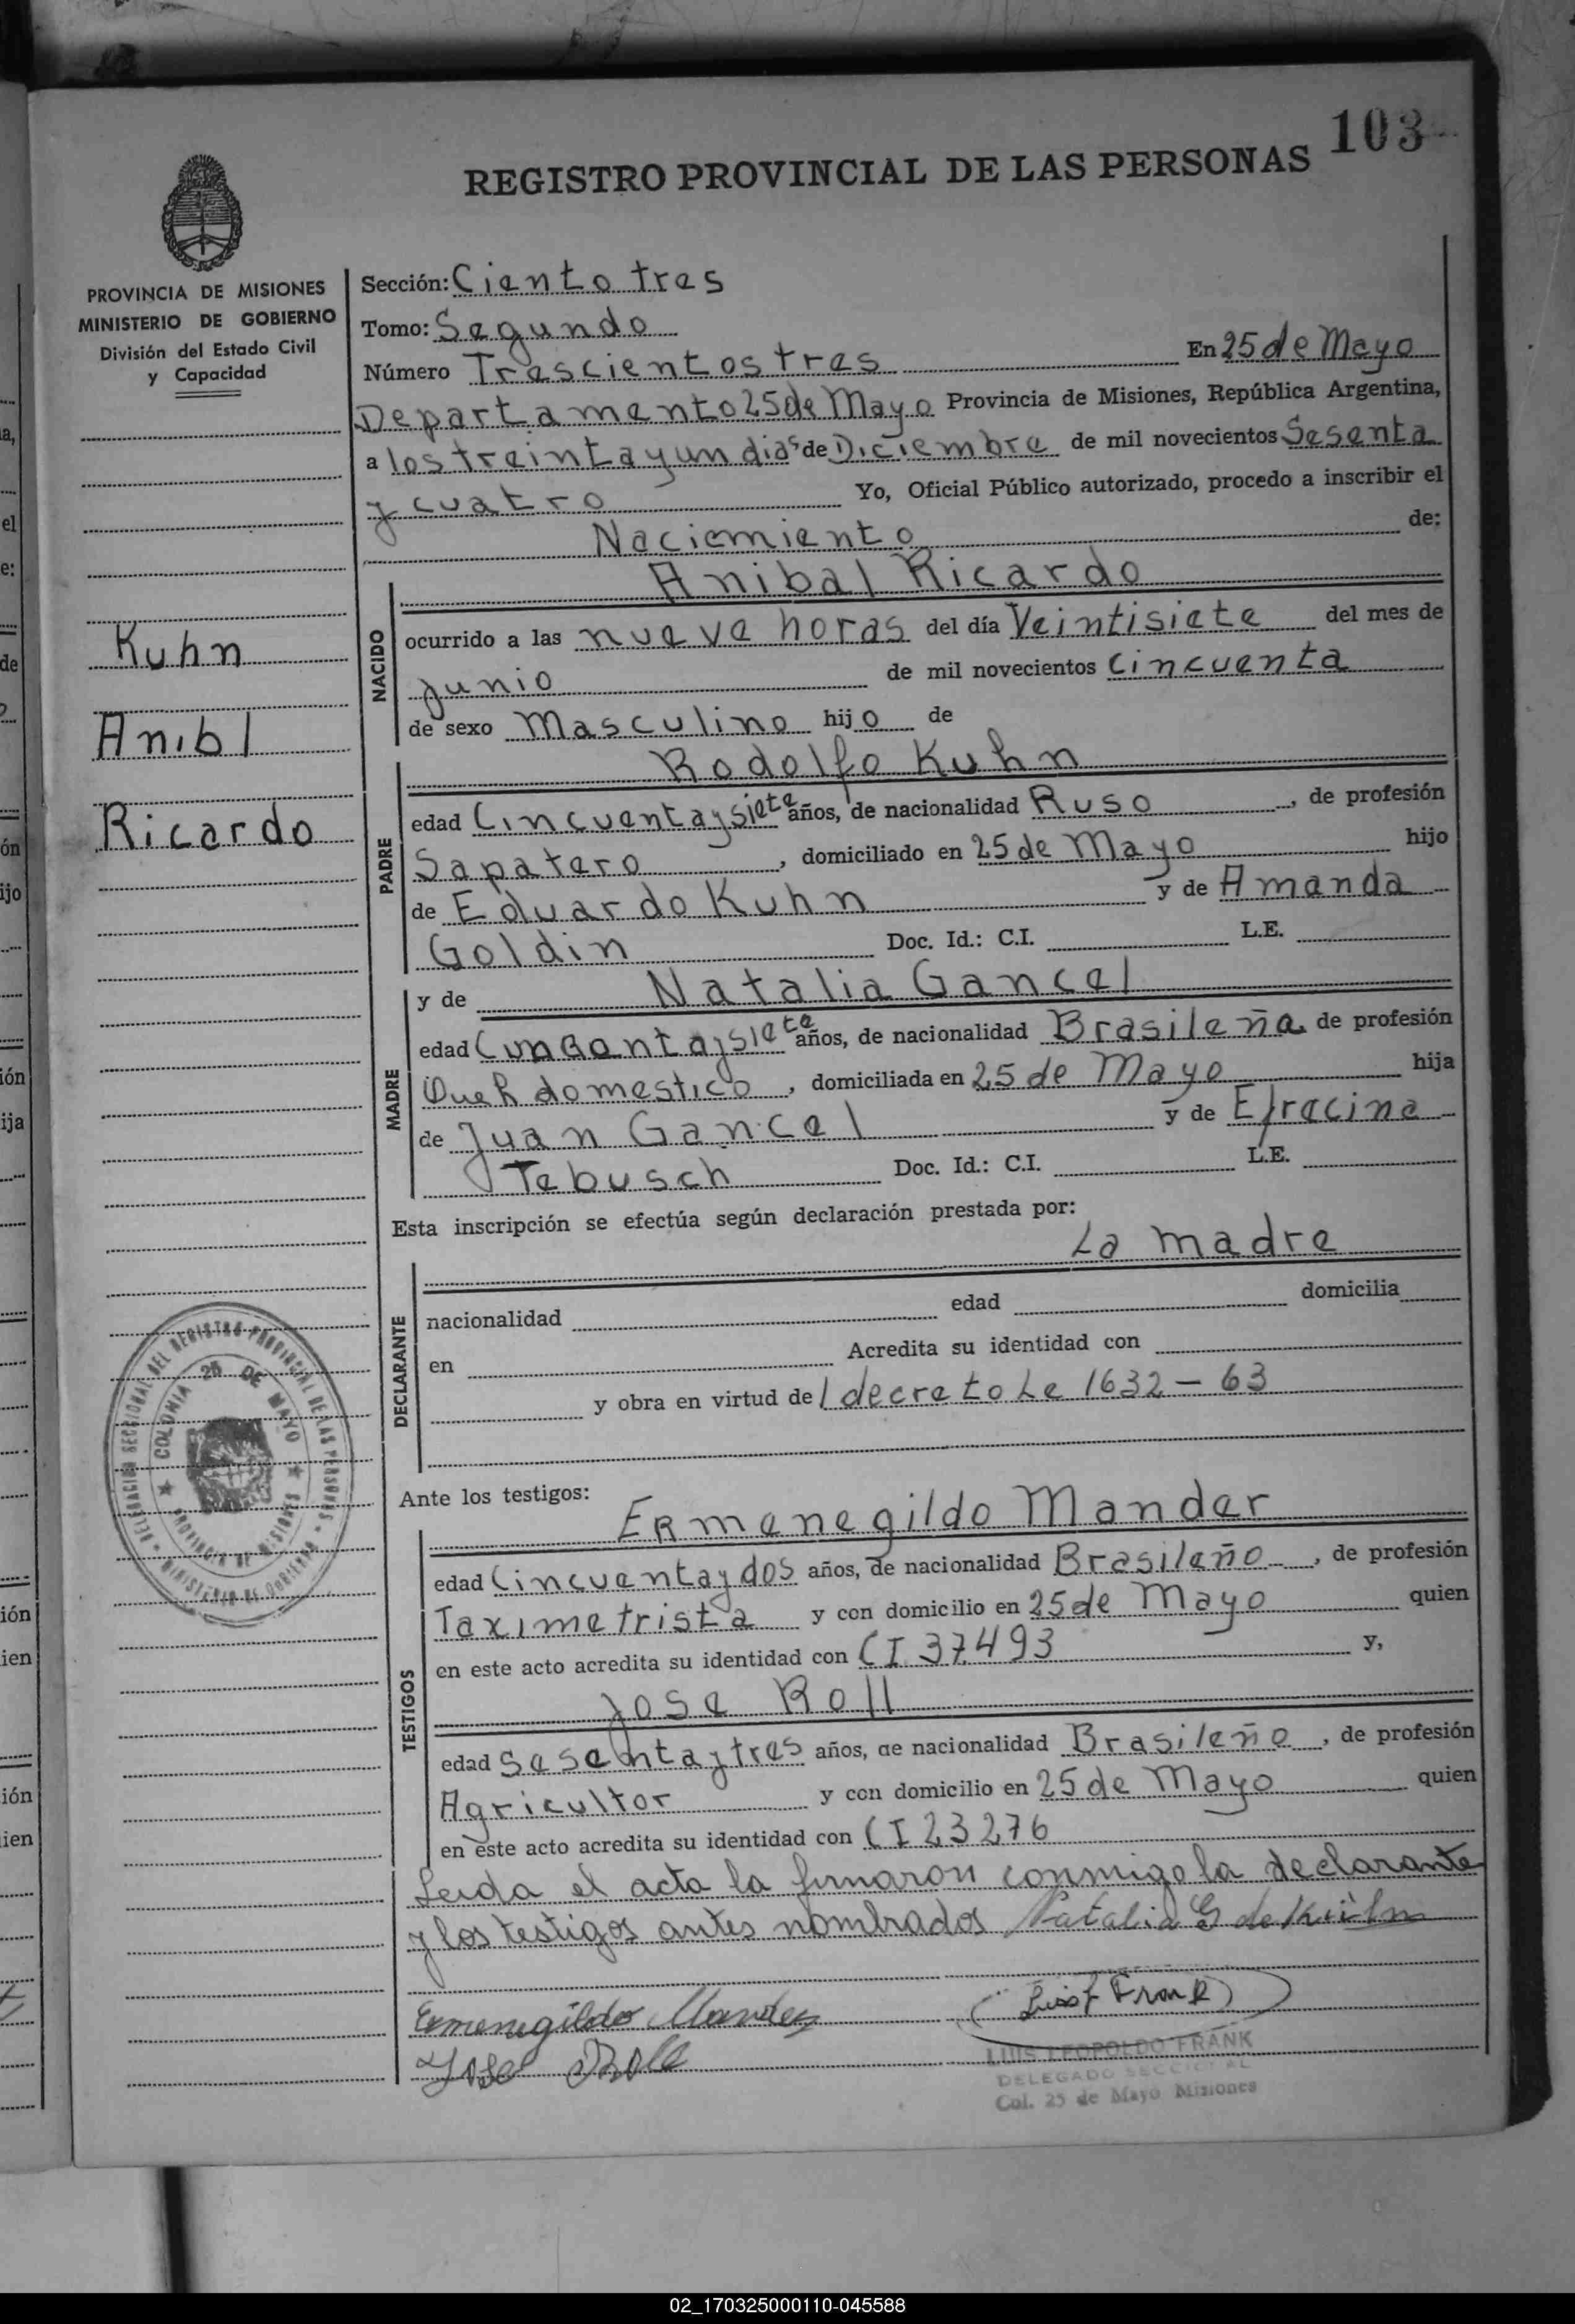 103
REGISTRO PROVINCIAL DE LAS PERSONAS
PROVINCIA DE MISIONES
MINISTERIO DE GOBIERNO
División del Estado Civil
y Capacidad
Kuhn
Anibl
Ricardo
Sección: Ciento tres
Tomo: Segundo
Número Trescientos tres En 25 de Mayo
Departamento 25 de Mayo Provincia de Misiones, República Argentina,
a los treinta y un dias de Diciembre de mil novecientos Sesenta
y cuatro Yo, Oficial Público autorizado, procedo a inscribir el
Naciemiento de:
NACIDO
Anibal Ricardo
ocurrido a las nueve horas del día Veintisiete del mes de
junio de mil novecientos cincuenta
de sexo Masculino hijo de
PADRE
Rodolfo Kuhn
edad Cincuenta y siete años, de nacionalidad Ruso, de profesión
Sapatero, domiciliado en 25 de Mayo hijo
de Eduardo Kuhn y de Amanda
Goldin Doc. Id.: C.I. L.E.
MADRE
y de Natalia Gancel
edad y siete años, de nacionalidad Brasileña de profesión
domestico, domiciliada en 25 de Mayo hija
de Juan Gancel y de
Tebusch Doc. Id.: C.I. L.E.
Esta inscripción se efectúa según declaración prestada por:
DECLARANTE
La madre
nacionalidad edad domicilia
en Acredita su identidad con
y obra en virtud del decreto Le 1632 - 63
Ante los testigos:
TESTIGOS
Ermenegildo Mander
edad Cincuenta y dos años, de nacionalidad Brasileño, de profesión
Taximetrista y con domicilio en 25 de Mayo quien
en este acto acredita su identidad con CI 37.493 y,
Jose Roll
edad Sesenta y tres años, de nacionalidad Brasileño, de profesión
Agricultor y con domicilio en 25 de Mayo quien
en este acto acredita su identidad con CI 23276
Leida el acta la firmaron conmigo la declarante
y los testigos antes nombrados Natalia G de Kühn
Ermenegildo Mander
Jose Roll
Frank
LUIS LEOPOLDO FRANK
DELEGADO SECCIONAL
Col. 25 de Mayo Misiones
DELEGACION SECCIONAL DEL REGISTRO PROVINCIAL DE LAS PERSONAS
MINISTERIO DE GOBIERNO
COLONIA 25 DE MAYO
PROVINCIA DE MISIONES
a,
el
e:
de
ón
ijo
ión
ija
ión
ien
ión
ien
02_170325000110-045588